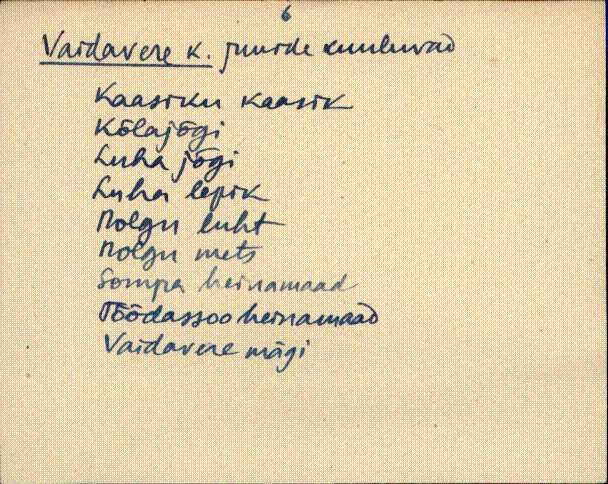 6
Vaidavere k. juurde kuuluvad
Kaasiku kaasik
Kõlajõgi
Luha jõgi
Luha lepik
Nolgu luht
Nolgu mets
Sompa heinamaad
Töödassoo heinamaad
Vaidavere mägi